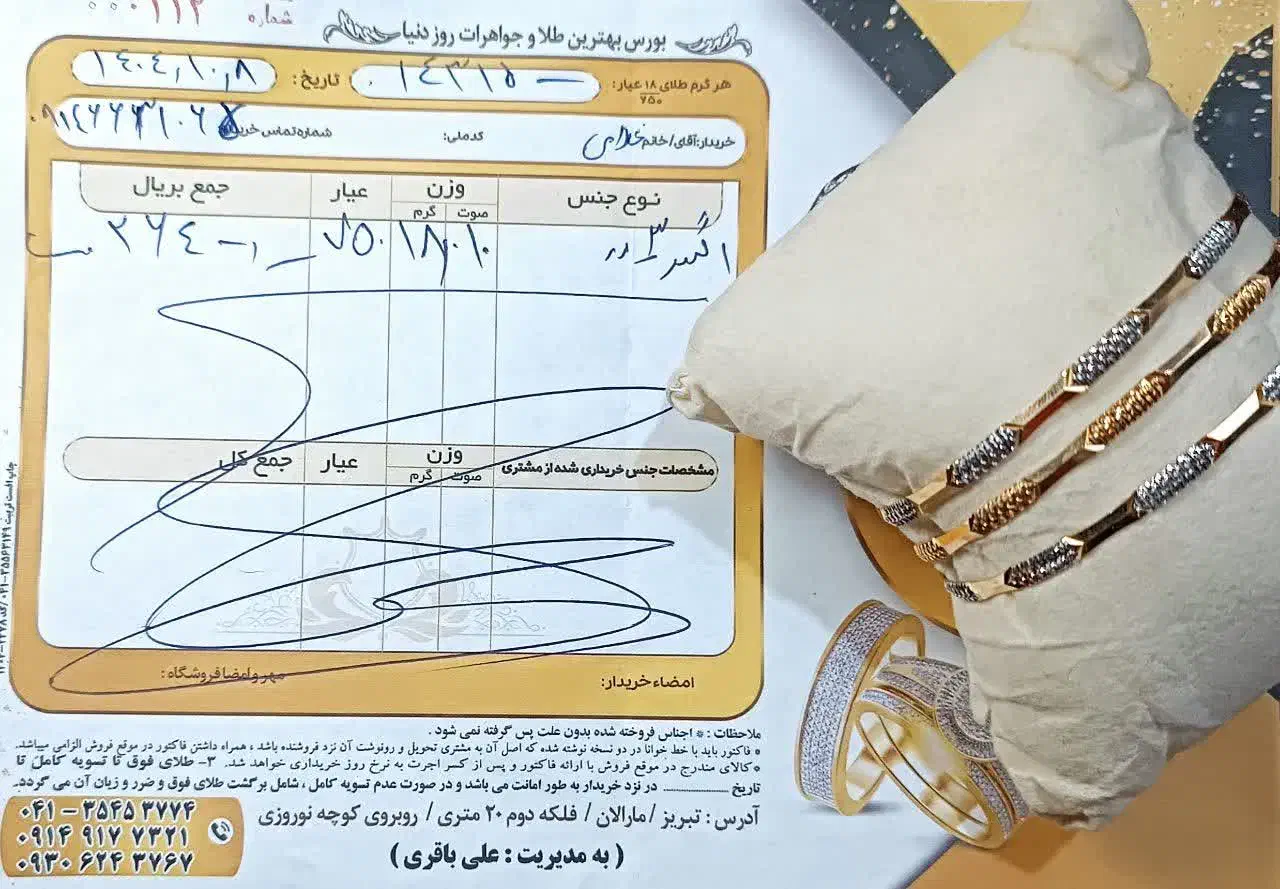 شماره ۰۰۰۱۱۲
بورس بهترین طلا و جواهرات روز دنیا
هر گرم طلای ۱۸ عیار: ۱۴۳۱۵ تاریخ: ۱۴۰۴,۱۰,۸
۷۵۰
خریدار: آقای/خانم غلامی کدملی: شماره تماس خریدار
نوع جنس وزن عیار جمع بریال
صوت گرم
۳ ۱۸,۰۱۰ ۷۵۰ ۲۶۴۰
مشخصات جنس خریداری شده از مشتری وزن عیار جمع کل
صوت گرم
امضاء خریدار: مهر و امضا فروشگاه:
ملاحظات : * اجناس فروخته شده بدون علت پس گرفته نمی شود .
* فاکتور باید با خط خوانا در دو نسخه نوشته شده که اصل آن به مشتری تحویل و رونوشت آن نزد فروشنده باشد ، همراه داشتن فاکتور در موقع فروش الزامی میباشد.
* کالای مندرج در موقع فروش با ارائه فاکتور و پس از کسر اجرت به نرخ روز خریداری خواهد شد. ۳- طلای فوق تا تسویه کامل تا
تاریخ ............ در نزد خریدار به طور امانت می باشد و در صورت عدم تسویه کامل ، شامل برگشت طلای فوق و ضرر و زیان آن می گردد.
آدرس : تبریز / مارالان / فلکه دوم ۲۰ متری / روبروی کوچه نوروزی
( به مدیریت : علی باقری )
۰۴۱ – ۳۵۴۵ ۳۷۷۴
۰۹۱۴ ۹۱۷ ۷۳۲۱
۰۹۳۰ ۶۲۴ ۳۷۶۷